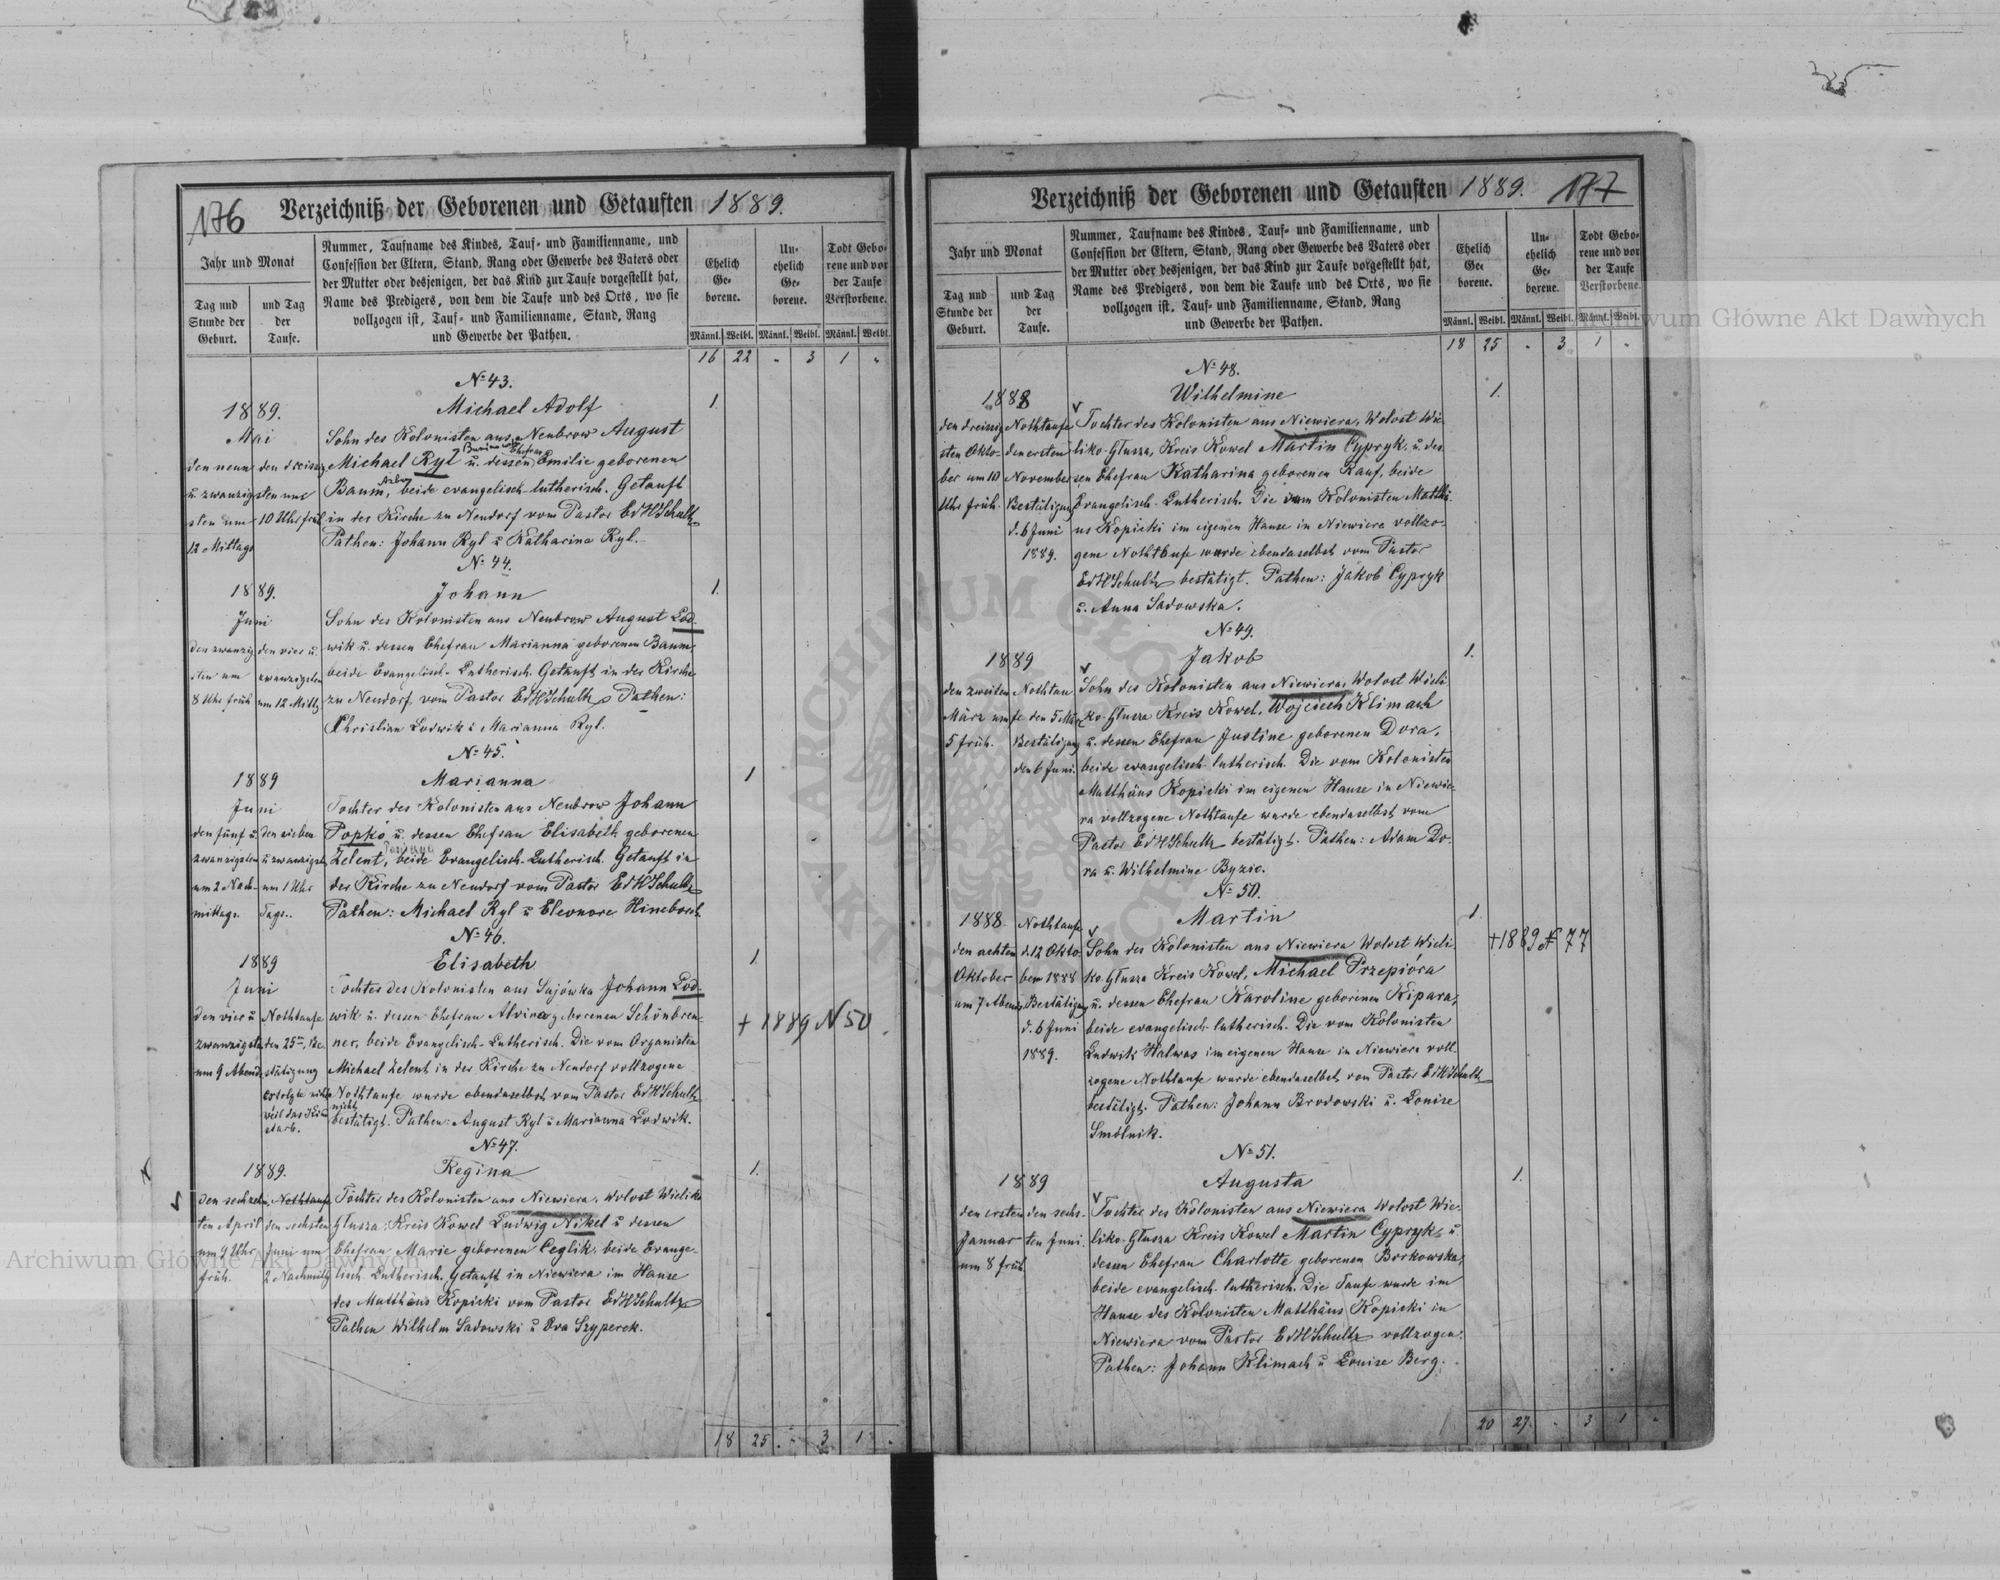 176
Verzeichniß der Geborenen und Getauften 1889.
Jahr und Monat
Tag und Stunde der Geburt.
und Tag der Taufe.
Nummer, Taufname des Kindes, Tauf- und Familienname, und
Confession der Eltern, Stand, Rang oder Gewerbe des Vaters oder
der Mutter oder desjenigen, der das Kind zur Taufe vorgestellt hat,
Name des Predigers, von dem die Taufe und des Orts, wo sie
vollzogen ist, Tauf- und Familienname, Stand, Rang
und Gewerbe der Pathen.
Ehelich Ge- borene.
Un- ehelich Ge- borene.
Todt Gebo- rene und vor der Taufe Verstorbene.
Männl. Weibl. Männl. Weibl. Männl. Weibl.
16 22 " 3 1 "
No 43.
1889.
Mai
den neun
u. zwanzig
sten um
12 Mittags
den dreissig
sten um
10 Uhr früh
Michael Adolf 1.
Sohn des Kolonisten aus Neubrow August
Michael Ryl u. dessen Ehefrau Emilie geborenen
Baum, beide evangelisch-lutherisch. Getauft
in der Kirche zu Neudorf vom Pastor EdHSchultz
Pathen: Johann Ryl u Katharina Ryl.
No 44.
1889.
Juni
den zwanzig
sten um
8 Uhr früh
den vier u.
zwanzigsten
um 12 Mittg
Johann 1.
Sohn des Kolonisten aus Neubrow August Lod-
wik u. dessen Ehefrau Marianna geborenen Baum,
beide Evangelisch-Lutherisch. Getauft in der Kirche
zu Neudorf vom Pastor EdHSchultz Pathen:
Christian Ludwik u Marianna Ryl.
No 45.
1889
Juni
den fünf u.
zwanzigsten
um 2 Nach-
mittags.
den sieben
u zwanzigst
um 1 Uhr
Tags.
Marianna 1
Tochter des Kolonisten aus Neubrow Johann
Popko u. dessen Ehefrau Elisabeth geborenen
Zelent, beide Evangelisch-Lutherisch. Getauft in
der Kirche zu Neudorf vom Pastor EdHSchultz
Pathen: Michael Ryl u Eleonore Hineborch
No 46.
1889
Juni
den vier u
zwanzigsten
um 9 Abend
Nothtaufe
den 25ten, Be-
stätigung
erfolgte nicht
weil das Kind
starb.
Elisabeth 1.
Tochter des Kolonisten aus Sajówka Johann Lod-
wik u. dessen Ehefrau Alvina geborenen Schönbren-
ner, beide Evangelisch-Lutherisch. Die vom Organisten
Michael Zelent in der Kirche zu Neudorf vollzogene
Nothtaufe wurde ebendaselbst vom Pastor EdHSchultz
nicht
bestätigt. Pathen: August Ryl u Marianna Lodwik.
+ 1889 N 50
No 47.
1889.
den sechzehn
ten April
um 9 Uhr
früh.
Nothtaufe
den sechsten
Juni um
2 Nachmittg
Regina 1.
Tochter des Kolonisten aus Niewiera, Wolost Wieliko
Głusza, Kreis Kowel Ludwig Nikel u dessen
Ehefrau Marie geborenen Ceglik, beide Evange-
lisch Lutherisch. Getauft in Niewiera im Hause
des Matthäus Kopicki vom Pastor EdHSchultz
Pathen Wilhelm Sadowski u Eva Szyperek.
18 25 . " 3 1 .
Verzeichniß der Geborenen und Getauften 1889. 177
Jahr und Monat
Tag und Stunde der Geburt.
und Tag der Taufe.
Nummer, Taufname des Kindes, Tauf- und Familienname, und
Confession der Eltern, Stand, Rang oder Gewerbe des Vaters oder
der Mutter oder desjenigen, der das Kind zur Taufe vorgestellt hat,
Name des Predigers, von dem die Taufe und des Orts, wo sie
vollzogen ist, Tauf- und Familienname, Stand, Rang
und Gewerbe der Pathen.
Ehelich Ge- borene.
Un- ehelich Ge- borene.
Todt Gebo- rene und vor der Taufe Verstorbene.
Männl. Weibl. Männl. Weibl. Männl. Weibl.
18 25 " 3 1 "
No 48.
1888
den dreissig
sten Okto-
ber um 10
Uhr früh.
Nothtaufe
den ersten
November
Bestätigung
d. 6 Juni
1889.
Wilhelmine 1.
Tochter des Kolonisten aus Niewiera, Wolost Wie-
liko-Głusza, Kreis Kowel Martin Cypryk, u. des-
sen Ehefrau Katharina geborenen Rauf, beide
Evangelisch-Lutherisch. Die vom Kolonisten Matthä-
us Kopicki im eigenen Hause in Niewiera vollzo-
gene Nothtaufe wurde ebendaselbst vom Pastor
EdHSchultz bestätigt. Pathen: Jakob Cypryk
u. Anna Sadowska.
No 49.
1889
den zweiten
März um
5 früh.
Nothtau
fe den 5 März
Bestätigung
den 6 Juni.
Jakob 1.
Sohn des Kolonisten aus Niewiera, Wolost Wieli-
ko-Głusza Kreis Kowel, Wojciech Klimach
u. dessen Ehefrau Justine geborenen Dora,
beide evangelisch lutherisch. Die vom Kolonisten
Matthäus Kopicki im eigenen Hause in Niewie-
ra vollzogene Nothtaufe wurde ebendaselbst vom
Pastor EdHSchultz bestätigt. Pathen: Adam Do-
ra u. Wilhelmine Byzio.
No 50.
1888.
den achten
Oktober
um 7 Abends
Nothtaufe
d. 12 Okto-
ber 1888
Bestätigung
d. 6 Juni
1889.
Martin 1.
Sohn des Kolonisten aus Niewiera Wolost Wieli-
ko-Głusza Kreis Kowel, Michael Przepióra
u. dessen Ehefrau Karoline geborenen Kipara,
beide evangelisch lutherisch. Die vom Kolonisten
Ludwik Halwas im eigenen Hause in Niewiera voll-
zogene Nothtaufe wurde ebendaselbst von Pastor EdHSchultz
bestätigt. Pathen: Johann Brodowski u. Louise
Smólnik.
+1889 N 77
No 51.
1889
den ersten
Januar
um 8 früh.
den sechs-
ten Juni.
Augusta 1.
Tochter des Kolonisten aus Niewiera Wolost Wie-
liko-Głusza Kreis Kowel Martin Cypryk, u
dessen Ehefrau Charlotte geborenen Borkowska,
beide evangelisch-lutherisch. Die Taufe wurde im
Hause des Kolonisten Matthäus Kopicki in
Niewiera vom Pastor EdHSchultz vollzogen.
Pathen: Johann Klimach u Louise Berg.
20 27. . 3 1 "
Archiwum Główne Akt Dawnych
Archiwum Główne Akt Dawnych